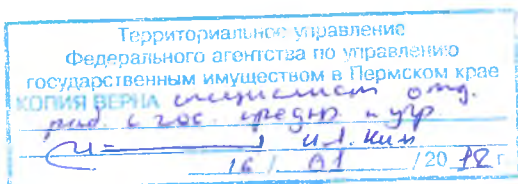 Территориальное управление
Федерального агентства по управлению
государственным имуществом в Пермском крае
КОПИЯ ВЕРНА специалист отд.
раб. с гос. предпр и учр
И.А. Ким
16 / 01 / 20 г.